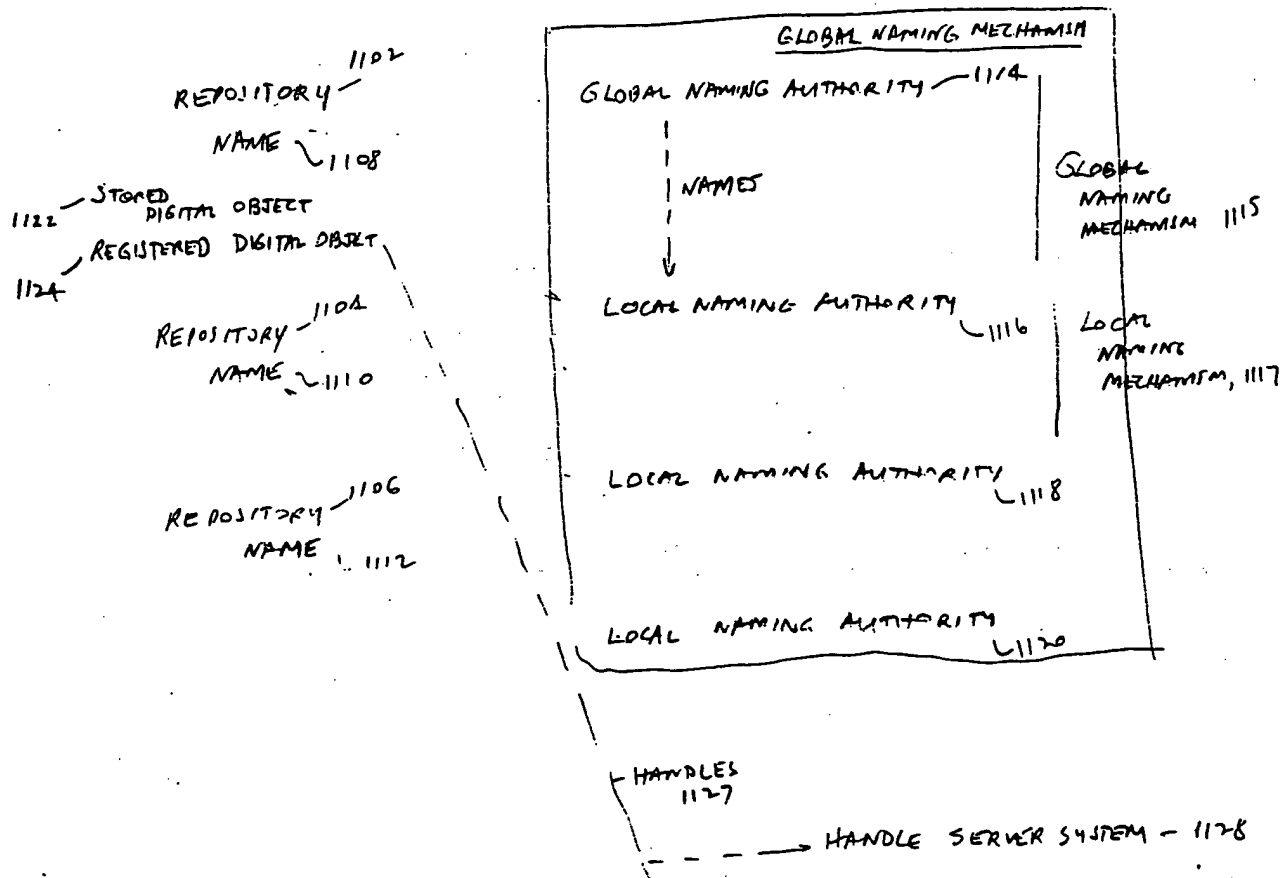 REPOSITORY 1102
NAME 1108
1122 STORED
DIGITAL OBJECT
1124 REGISTERED DIGITAL OBJECT
REPOSITORY 1104
NAME 1110
REPOSITORY 1106
NAME 1112
GLOBAL NAMING MECHANISM
GLOBAL NAMING AUTHORITY 1114
NAMES
GLOBAL
NAMING
MECHANISM 1115
LOCAL NAMING AUTHORITY
1116
LOCAL
NAMING
MECHANISM, 1117
LOCAL NAMING AUTHORITY
1118
LOCAL NAMING AUTHORITY
1120
HANDLES
1127
HANDLE SERVER SYSTEM - 1128